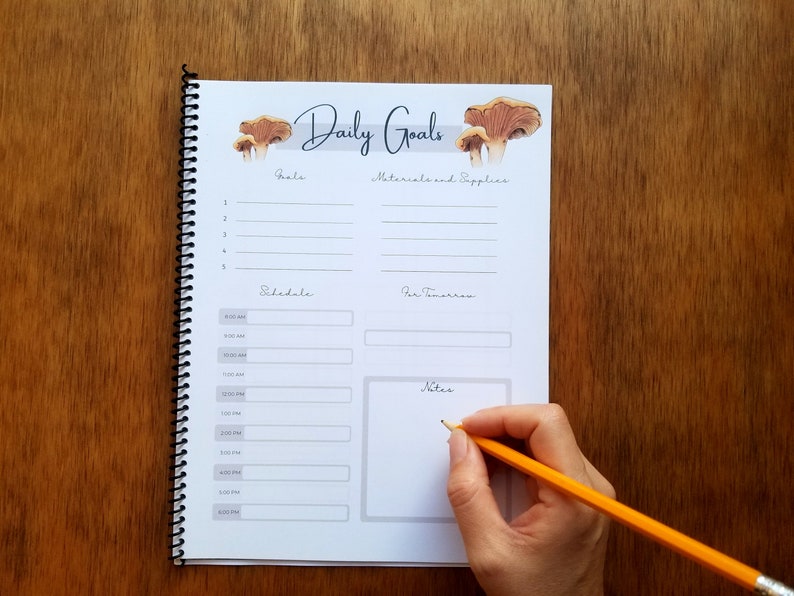 Daily Goals
Goals
1
2
3
4
5
Materials and Supplies
Schedule
8:00 AM
9:00 AM
10:00 AM
11:00 AM
12:00 PM
1:00 PM
2:00 PM
3:00 PM
4:00 PM
5:00 PM
6:00 PM
For Tomorrow
Notes